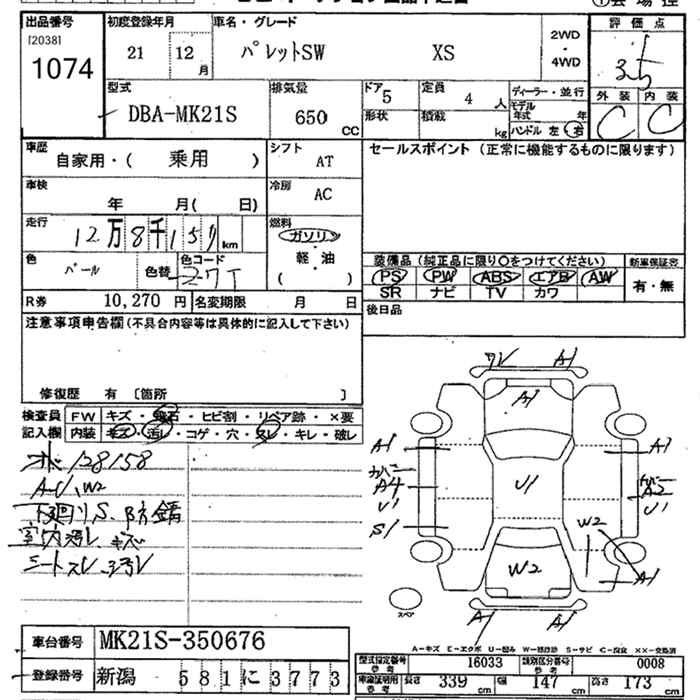 出品番号 初度登録年月 車名・グレード 評価点
[2038]
1074 21 12月 パレットSW XS 2WD・4WD 3.5
型式 排気量 ドア 定員 ディーラー・並行 外装 内装
DBA-MK21S 650 CC 5 4人 モデル年式 年 C C
形状 積載 kg ハンドル 左・右
車歴 自家用・( 乗用 ) シフト AT セールスポイント (正常に機能するものに限ります)
車検 年 月( 日) 冷房 AC
走行 12万8千150 km 燃料 ガソリン
軽・油
( )
色 パール 色替 色コード Z7T
装備品 (純正品に限り○をつけてください) 新車保証書
PS PW ABS エアB AW 有・無
SR ナビ TV カワ
R券 10,270円 名変期限 月 日 後日品
注意事項申告欄 (不具合内容等は具体的に記入して下さい)
修復歴 有 〔箇所 〕
検査員 FW キズ・飛石・ヒビ割・リペア跡・×要
記入欄 内装 キズ・汚レ・コゲ・穴・スレ・キレ・破レ
128158
A・U、W2
下廻りS、防錆
室内汚レ、キズ
シートスレ、汚レ
ワレ A1
A1
A1 A1
カバー カバー
A4 A2
U1 U1 U1
S1 W2
W2
A1
スペア A1 A1
A-キズ E-エクボ U-凹み W-補修跡 S-サビ C-腐食 XX-交換済
車台番号 MK21S-350676
登録番号 新潟 581に3773
型式指定番号 参考 16033 類別区分番号 参考 0008
車庫証明用 参考 長さ 339 cm 幅 147 cm 高さ 173 cm